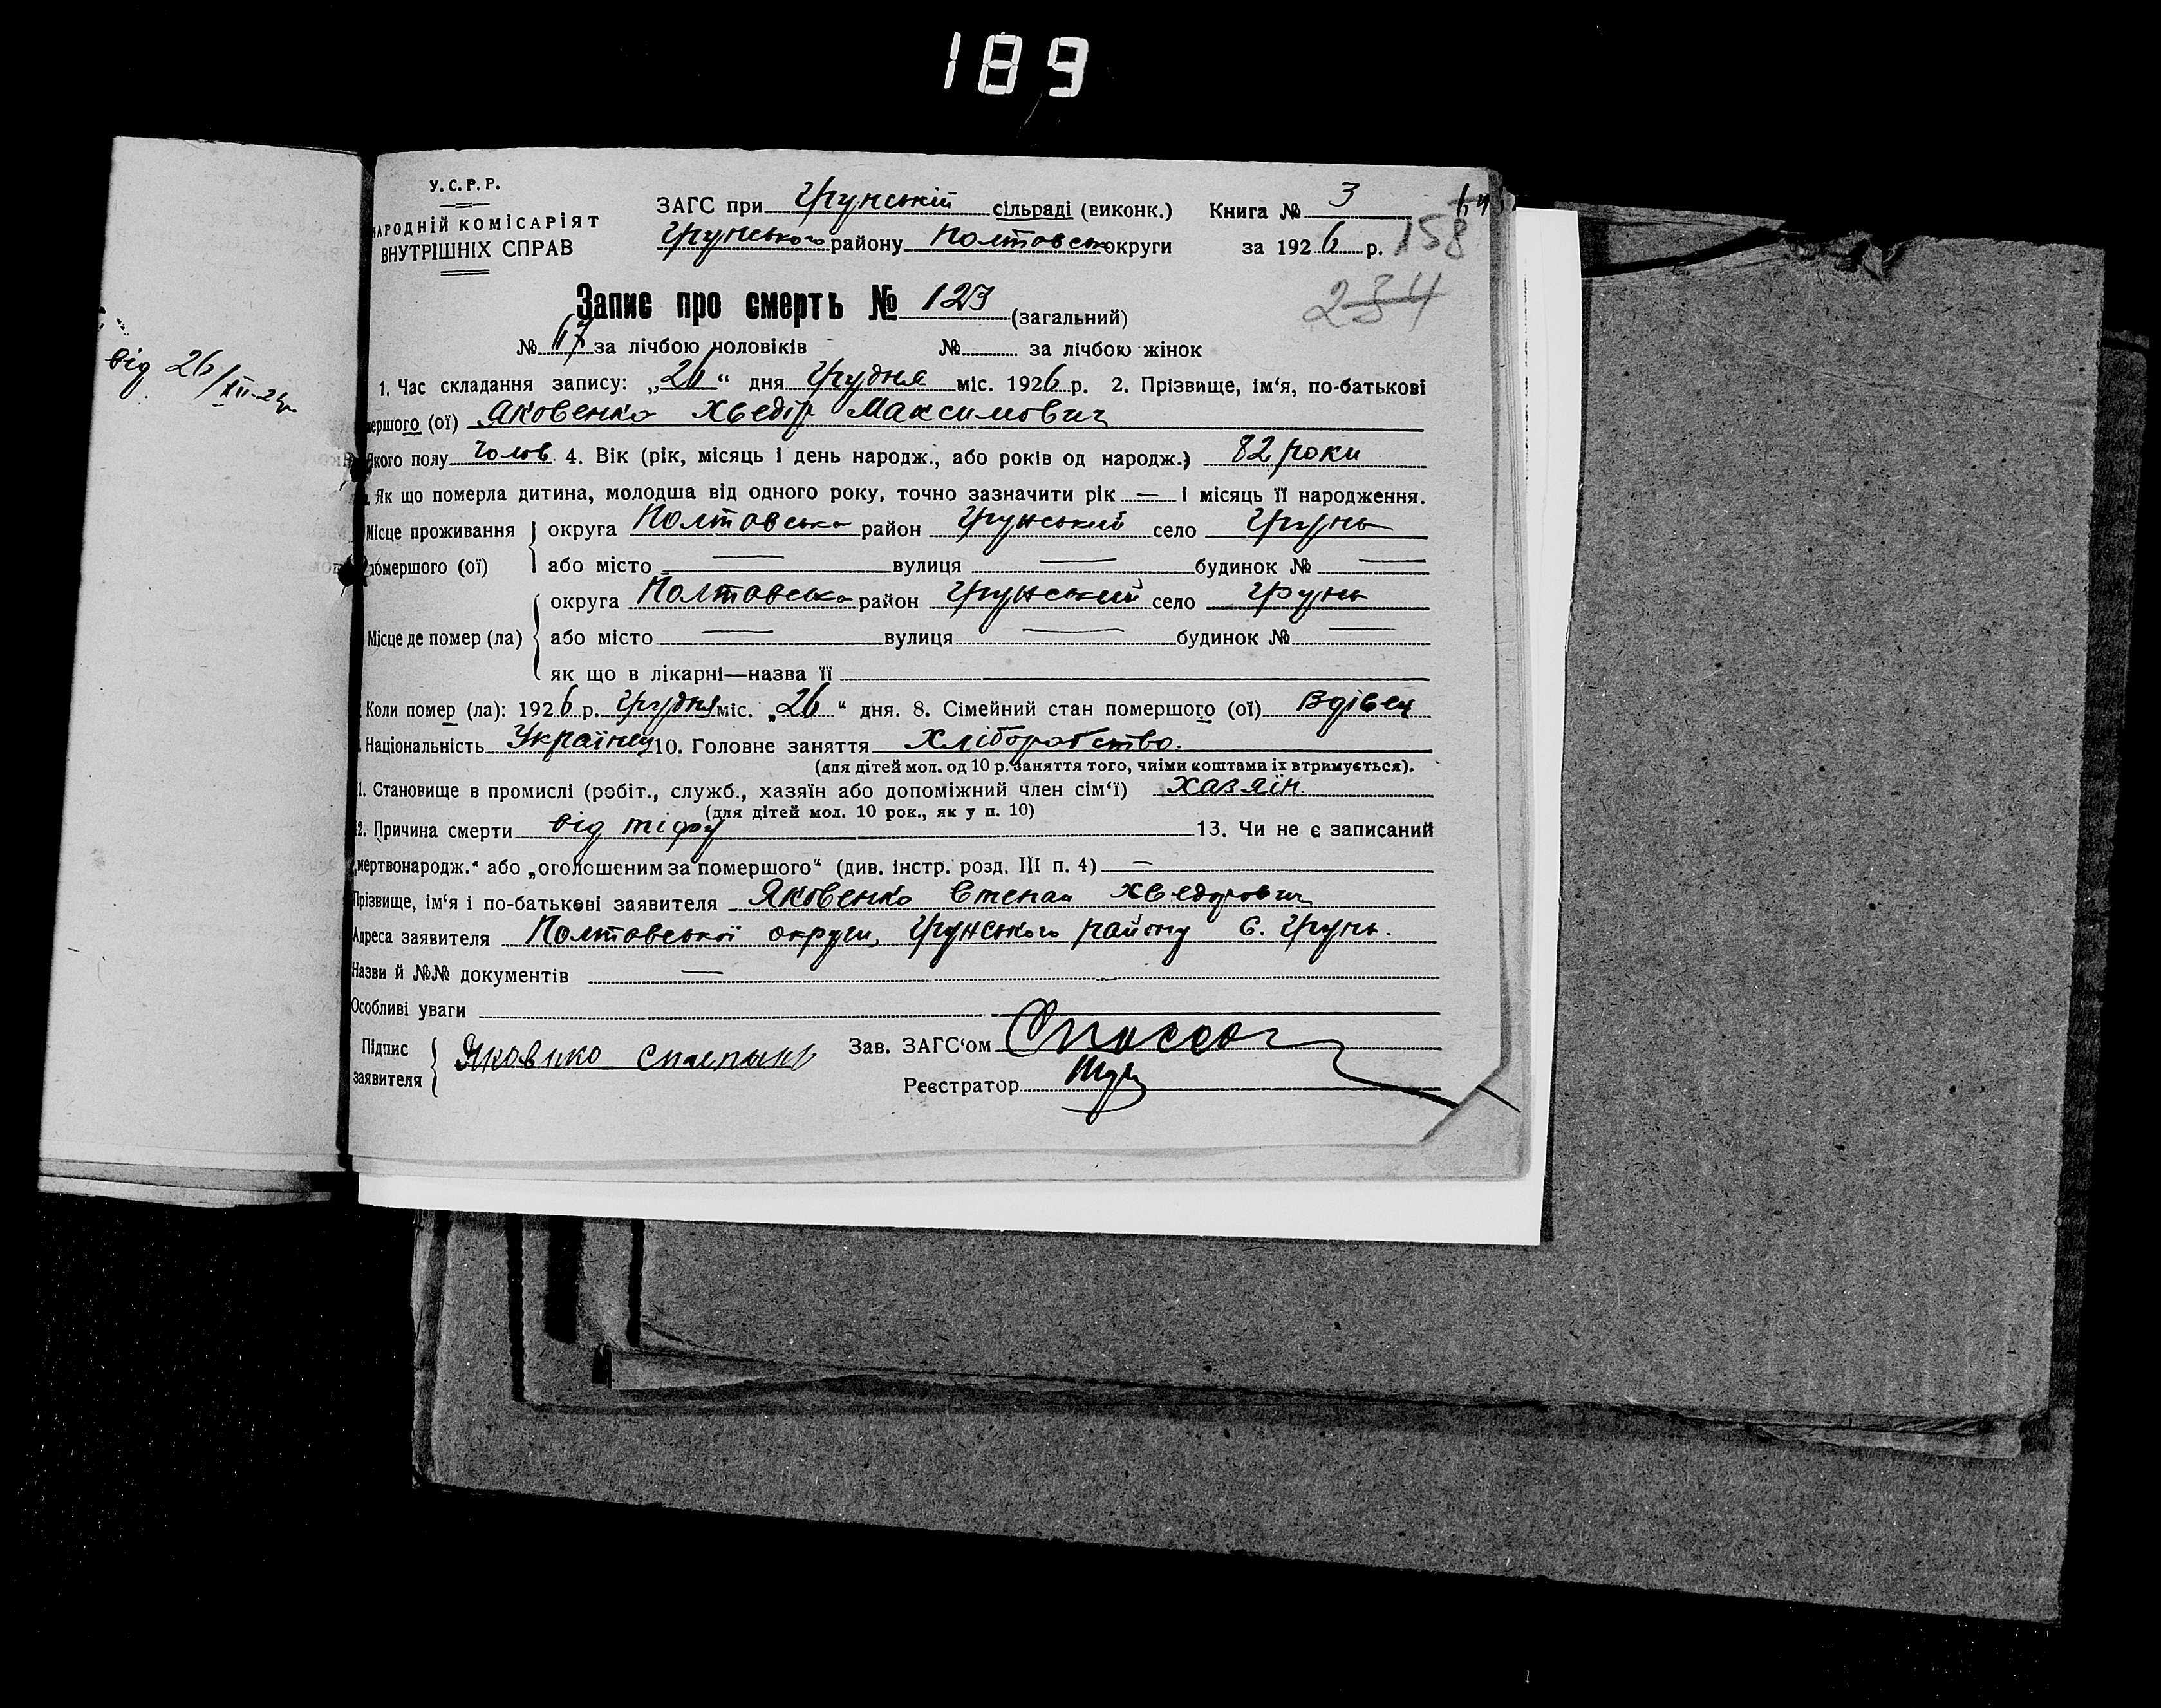 189
У.С.Р.Р.
НАРОДНІЙ КОМІСАРІЯТ
ВНУТРІШНІХ СПРАВ
ЗАГС при Грунській сільраді (виконк.) Книга № 3
Грунського району Полтавськ округи за 1926 р. 158
234
Запис про смерть № 123 (загальний)
№ 67 за лічбою чоловіків № за лічбою жінок
від 26/XII-26р
1. Час складання запису: „26“ дня Грудня міс. 1926 р. 2. Прізвище, ім‘я, по-батькові
мершого (ої) Яковенко Хведір Максимович
Якого полу Чолов. 4. Вік (рік, місяць і день народж., або років од народж.) 82 роки
. Як що померла дитина, молодша від одного року, точно зазначити рік — і місяць її народження.
Місце проживання округа Полтавська район Грунський село Грунь
помершого (ої) або місто — вулиця — будинок № —
округа Полтавська район Грунський село Грунь
Місце де помер (ла) або місто — вулиця — будинок № —
як що в лікарні—назва її
Коли помер (ла): 1926 р. Грудня міс. „26“ дня. 8. Сімейний стан помершого (ої) Вдівец
. Національність Українец 10. Головне заняття Хліборобство.
(для дітей мол. од 10 р. заняття того, чиїми коштами їх втримується).
1. Становище в промислі (робіт., служб., хазяїн або допоміжний член сім‘ї) Хазяїн.
(для дітей мол. 10 рок., як у п. 10)
2. Причина смерти від тіфу 13. Чи не є записаний
„мертвонародж.“ або „оголошеним за помершого“ (див. інстр. розд. III п. 4) —
Прізвище, ім‘я і по-батькові заявителя Яковенко Степан Хведорович
Адреса заявителя Полтавської округи, Грунського району С. Грунь.
Назви й №№ документів —
Особливі уваги
Підпис
заявителя Яковнко Степань Зав. ЗАГС‘ом
Реєстратор